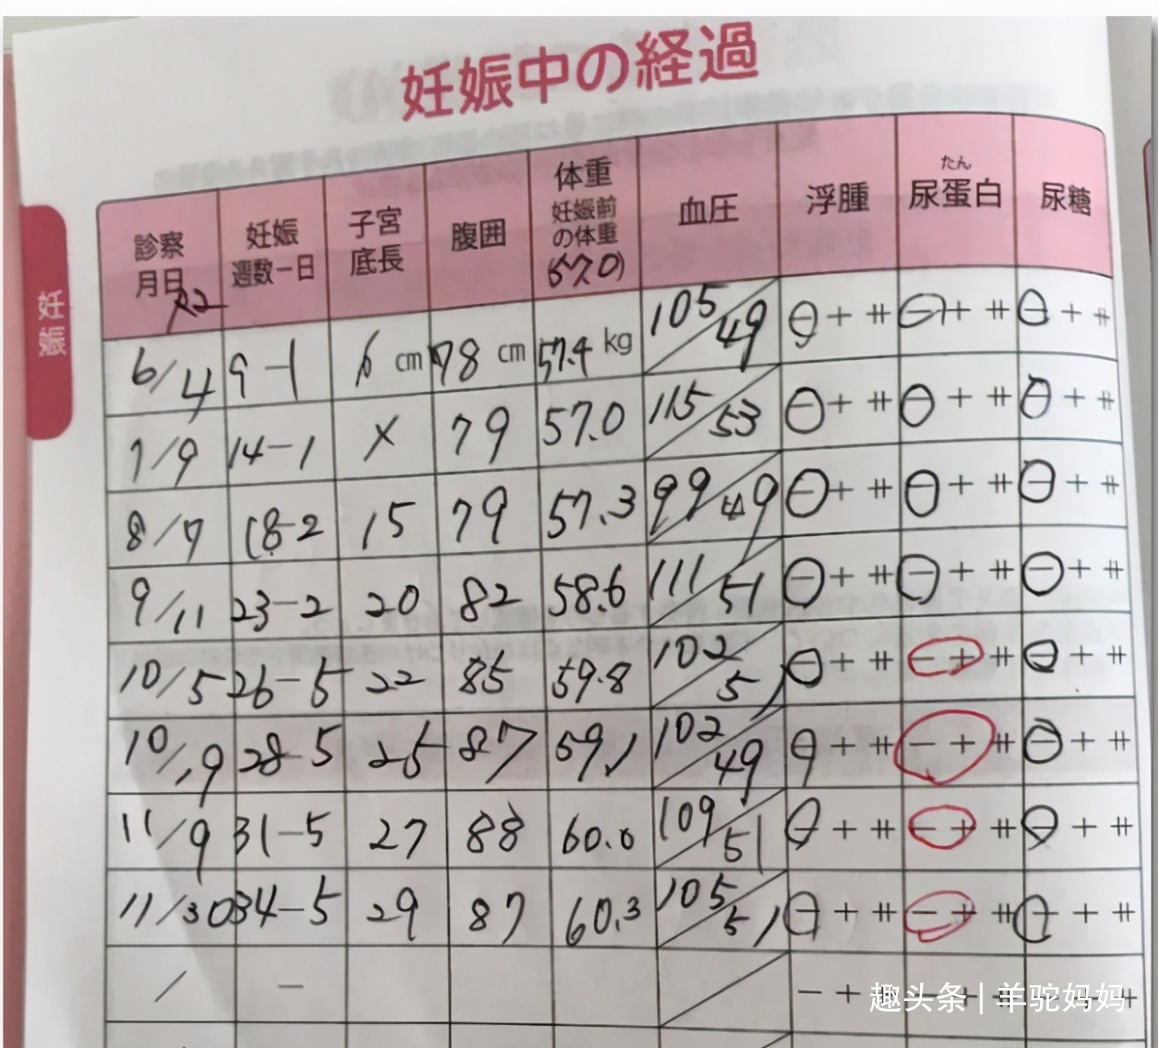 妊娠中の経過
妊娠
診察月日 妊娠週数一日 子宮底長 腹囲 体重 妊娠前の体重 (57.0) 血圧 浮腫 尿蛋白 たん 尿糖
R2
6/4 9-1 6 cm 78 cm 57.4 kg 105/49 - + ⧺ - + ⧺ - + ⧺
7/9 14-1 × 79 57.0 115/53 - + ⧺ - + ⧺ - + ⧺
8/7 18-2 15 79 57.3 99/49 - + ⧺ - + ⧺ - + ⧺
9/11 23-2 20 82 58.6 111/51 - + ⧺ - + ⧺ - + ⧺
10/5 26-5 22 85 59.8 102/51 - + ⧺ - + ⧺ - + ⧺
10/19 28-5 25 87 59.1 102/49 - + ⧺ - + ⧺ - + ⧺
11/9 31-5 27 88 60.0 109/51 - + ⧺ - + ⧺ - + ⧺
11/30 34-5 29 87 60.3 105/51 - + ⧺ - + ⧺ - + ⧺
/ - / - +
趣头条 | 羊驼妈妈